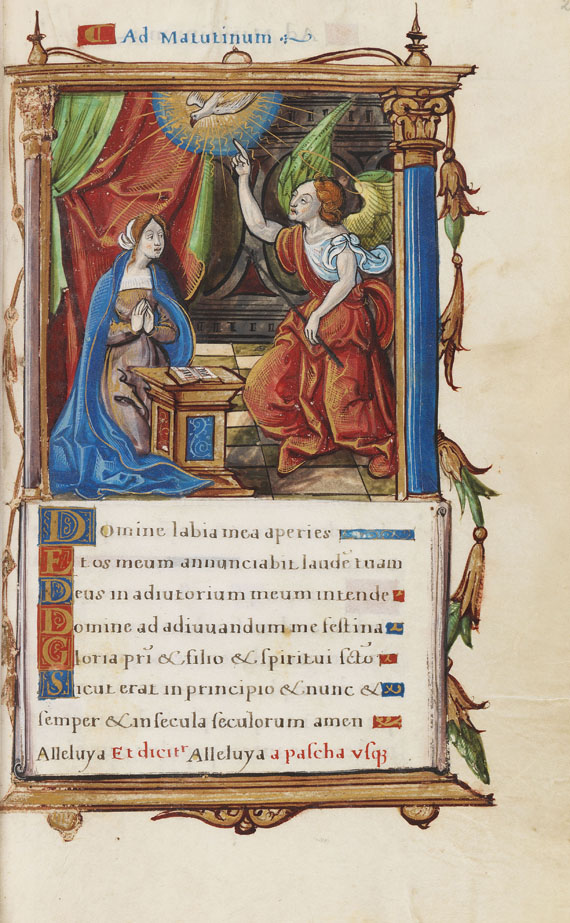 Ad Matutinum
Domine labia mea aperies
Et os meum annunciabit laudē tuam
Deus in adiutorium meum intende
Domine ad adiuuandum me festina
Gloria pr̄i & filio & spiritui sct̄o
Sicut erat in principio & nunc &
semper & in secula seculorum amen
Alleluya Et dicitr Alleluya a pascha vsqꝫ